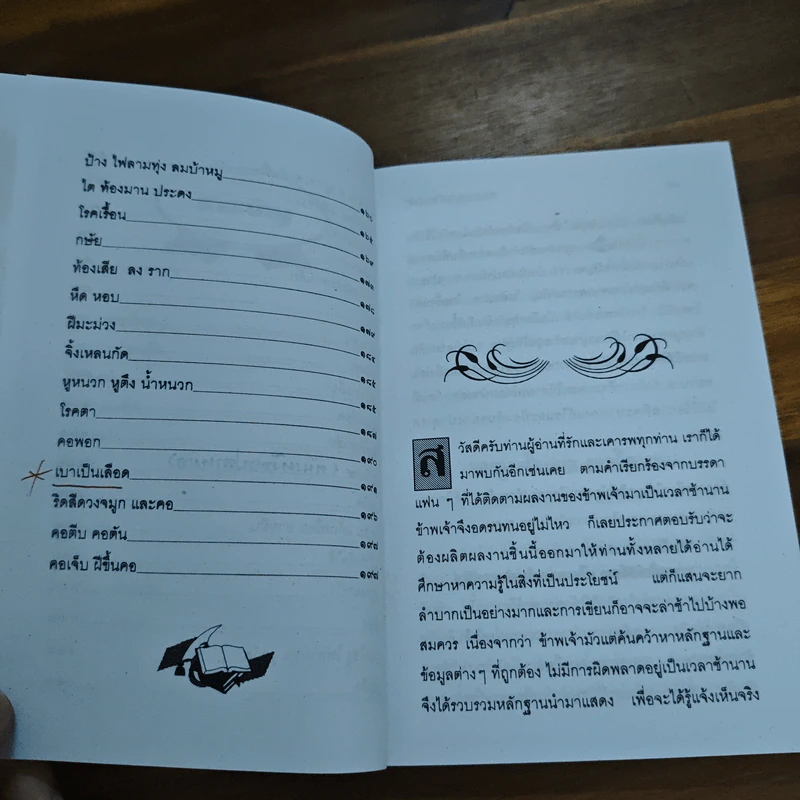 ป้าง ไฟลามทุ่ง ลมบ้าหมู
ไต ท้องมาน ประดง ๑๖๖
โรคเรื้อน ๑๖๕
กษัย ๑๖๙
ท้องเสีย ลง ราก ๑๗๑
หืด หอบ ๑๗๘
ฝีมะม่วง ๑๗๙
จิ้งเหลนกัด ๑๘๔
หูหนวก หูตึง น้ำหนวก ๑๘๕
โรคตา ๑๘๕
คอพอก ๑๘๗
เบาเป็นเลือด ๑๙๐
ริดสีดวงจมูก และคอ ๑๙๑
คอตีบ คอตัน ๑๙๖
คอเจ็บ ฝีขึ้นคอ ๑๙๗
๑๙๘
สวัสดีครับท่านผู้อ่านที่รักและเคารพทุกท่าน เราก็ได้
มาพบกันอีกเช่นเคย ตามคำเรียกร้องจากบรรดา
แฟน ๆ ที่ได้ติดตามผลงานของข้าพเจ้ามาเป็นเวลาช้านาน
ข้าพเจ้าจึงอดรนทนอยู่ไม่ไหว ก็เลยประกาศตอบรับว่าจะ
ต้องผลิตผลงานชิ้นนี้ออกมาให้ท่านทั้งหลายได้อ่านได้
ศึกษาหาความรู้ในสิ่งที่เป็นประโยชน์ แต่ก็แสนจะยาก
ลำบากเป็นอย่างมากและการเขียนก็อาจจะล่าช้าไปบ้างพอ
สมควร เนื่องจากว่า ข้าพเจ้ามัวแต่ค้นคว้าหาหลักฐานและ
ข้อมูลต่างๆ ที่ถูกต้อง ไม่มีการผิดพลาดอยู่เป็นเวลาช้านาน
จึงได้รวบรวมหลักฐานนำมาแสดง เพื่อจะได้รู้แจ้งเห็นจริง